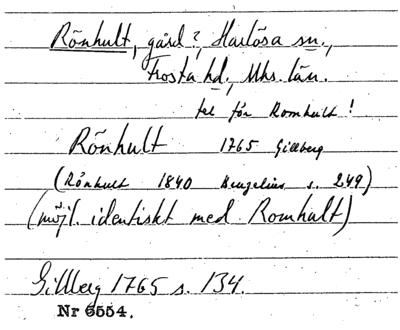 Rönhult, gård?, Harlösa sn.,
Frosta hd., Mhs. län.
fel för Romhult!
Rönhult 1765 Gillberg
(Rönhult 1840 Bengelius s. 249)
(möjl. identiskt med Romhult)
Gillberg 1765 s. 134.
Nr 6554.